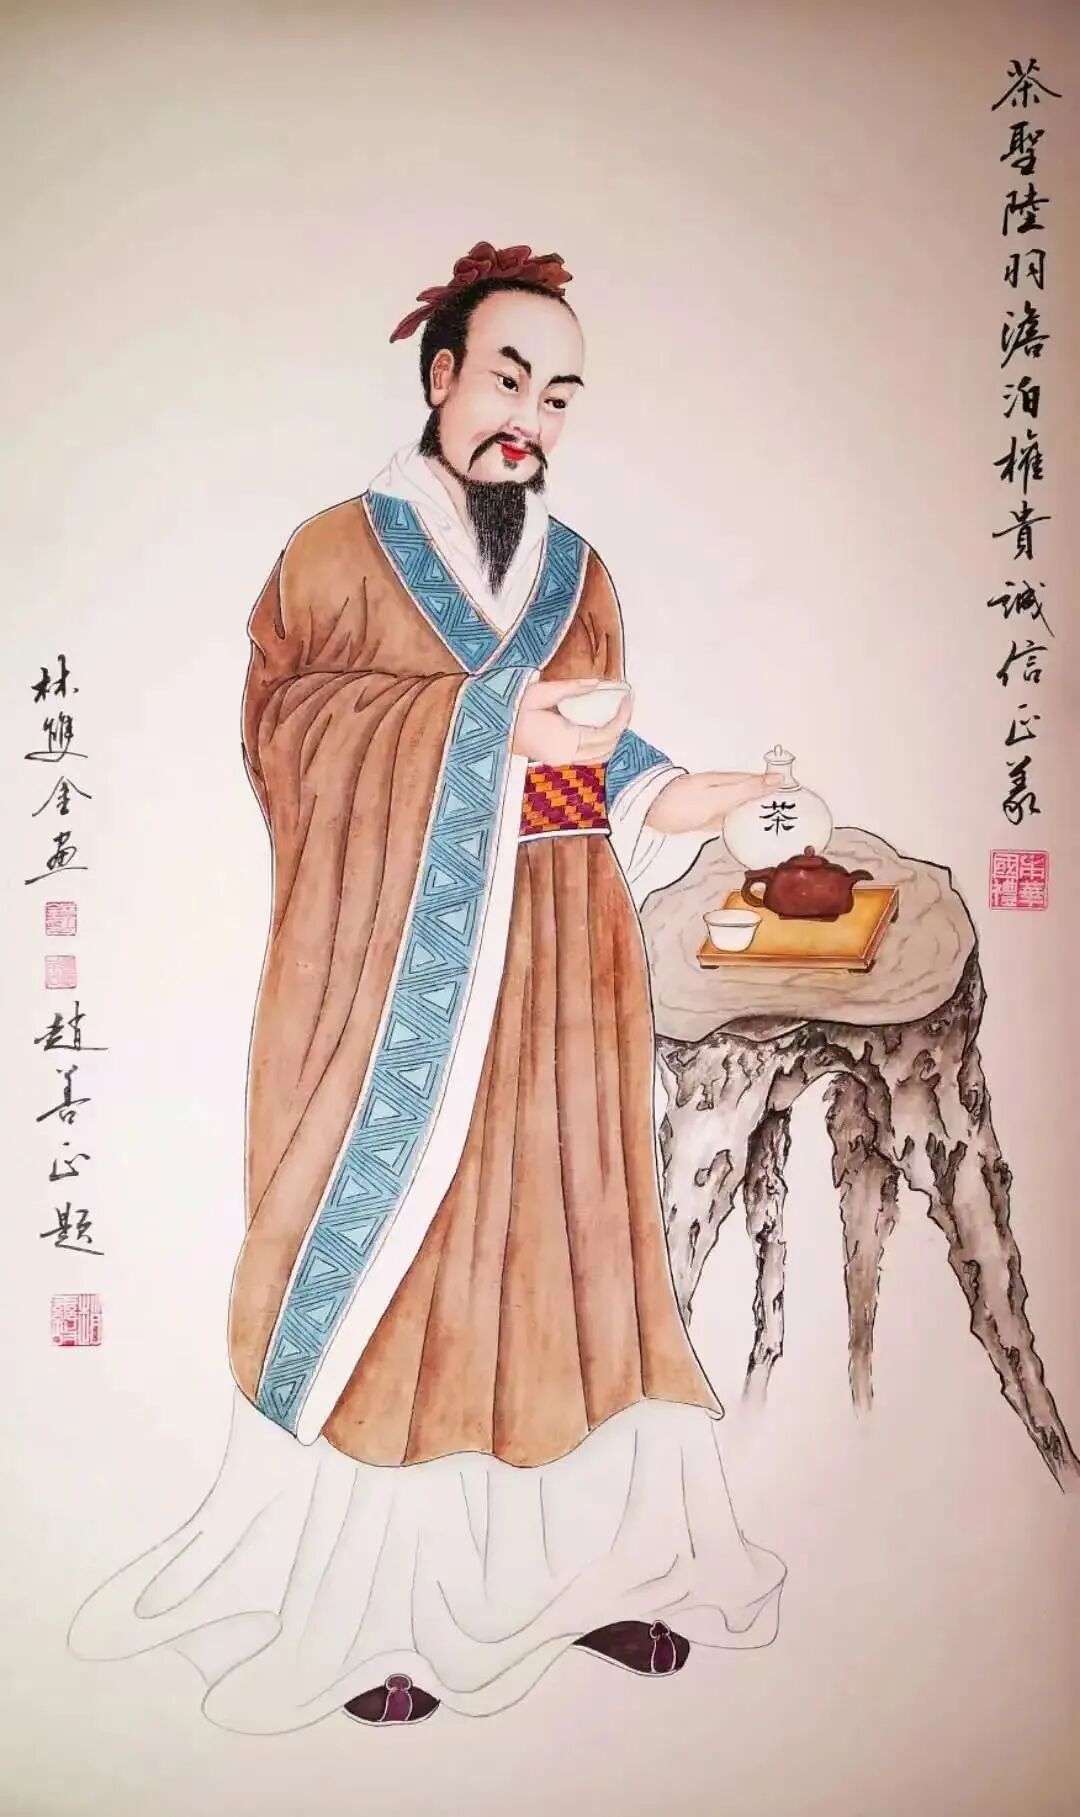 茶聖陸羽澹泊權貴誠信正義
朱華
國禮
茶
林雙金畫
趙善正題